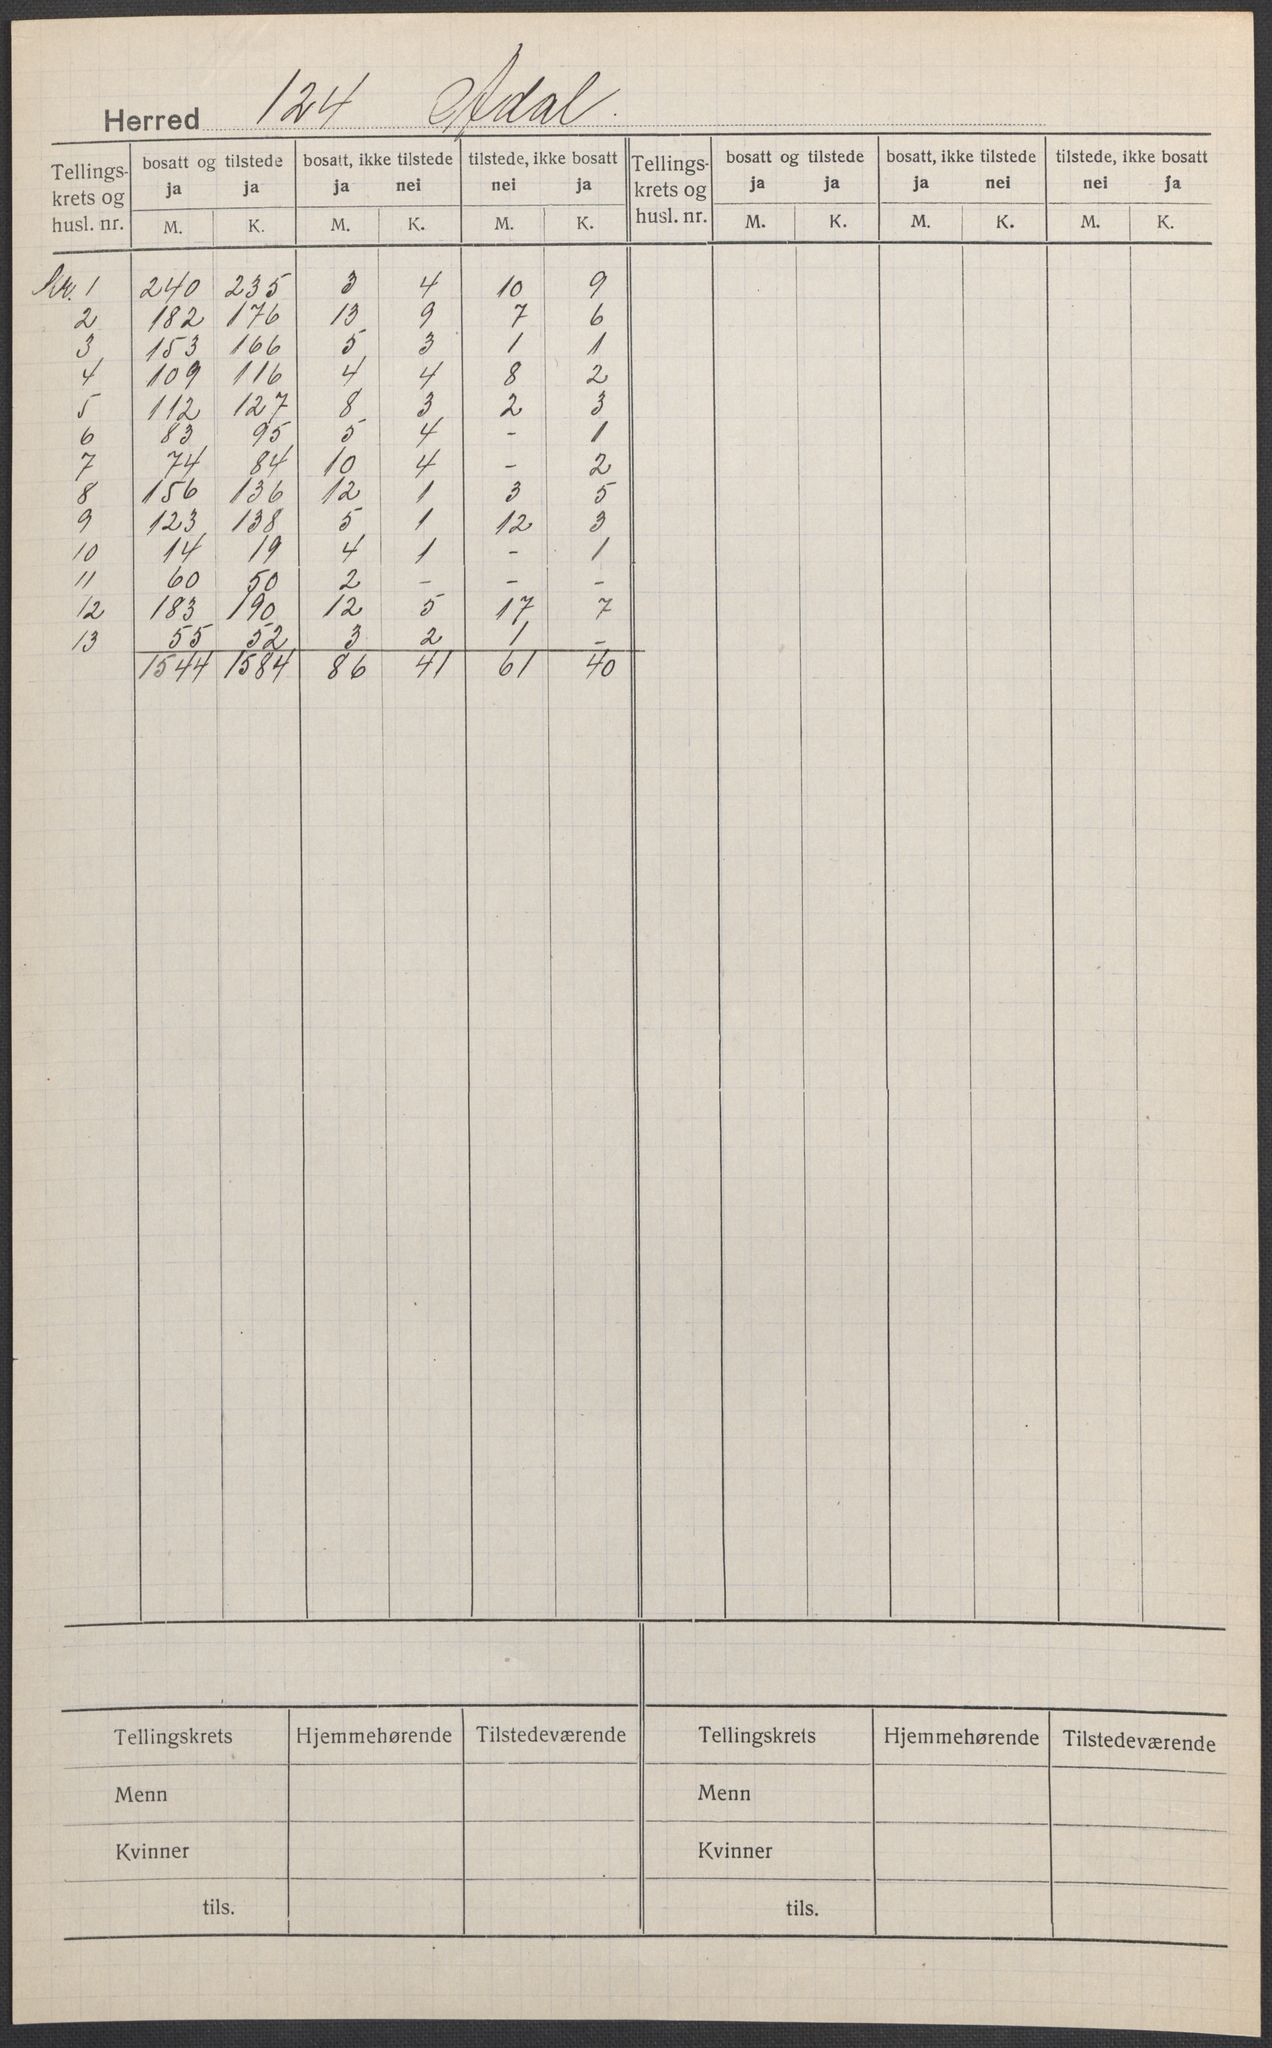 Herred 124 Ådal.
Tellings-krets og husl. nr. | bosatt og tilstede | bosatt, ikke tilstede | tilstede, ikke bosatt | Tellings-krets og husl. nr. | bosatt og tilstede | bosatt, ikke tilstede | tilstede, ikke bosatt
ja ja | ja nei | nei ja | ja ja | ja nei | nei ja
M. K. | M. K. | M. K. | M. K. | M. K. | M. K.
Kr. 1 240 235 3 4 10 9
2 182 176 13 9 7 6
3 153 166 5 3 1 1
4 109 116 4 4 8 2
5 112 127 8 3 2 3
6 83 95 5 4 - 1
7 74 84 10 4 - 2
8 156 136 12 1 3 5
9 123 138 5 1 12 3
10 14 19 4 1 - 1
11 60 50 2 - - -
12 183 190 12 5 17 7
13 55 52 3 2 1 -
1544 1584 86 41 61 40
Tellingskrets | Hjemmehørende | Tilstedeværende | Tellingskrets | Hjemmehørende | Tilstedeværende
Menn | Menn
Kvinner | Kvinner
tils. | tils.